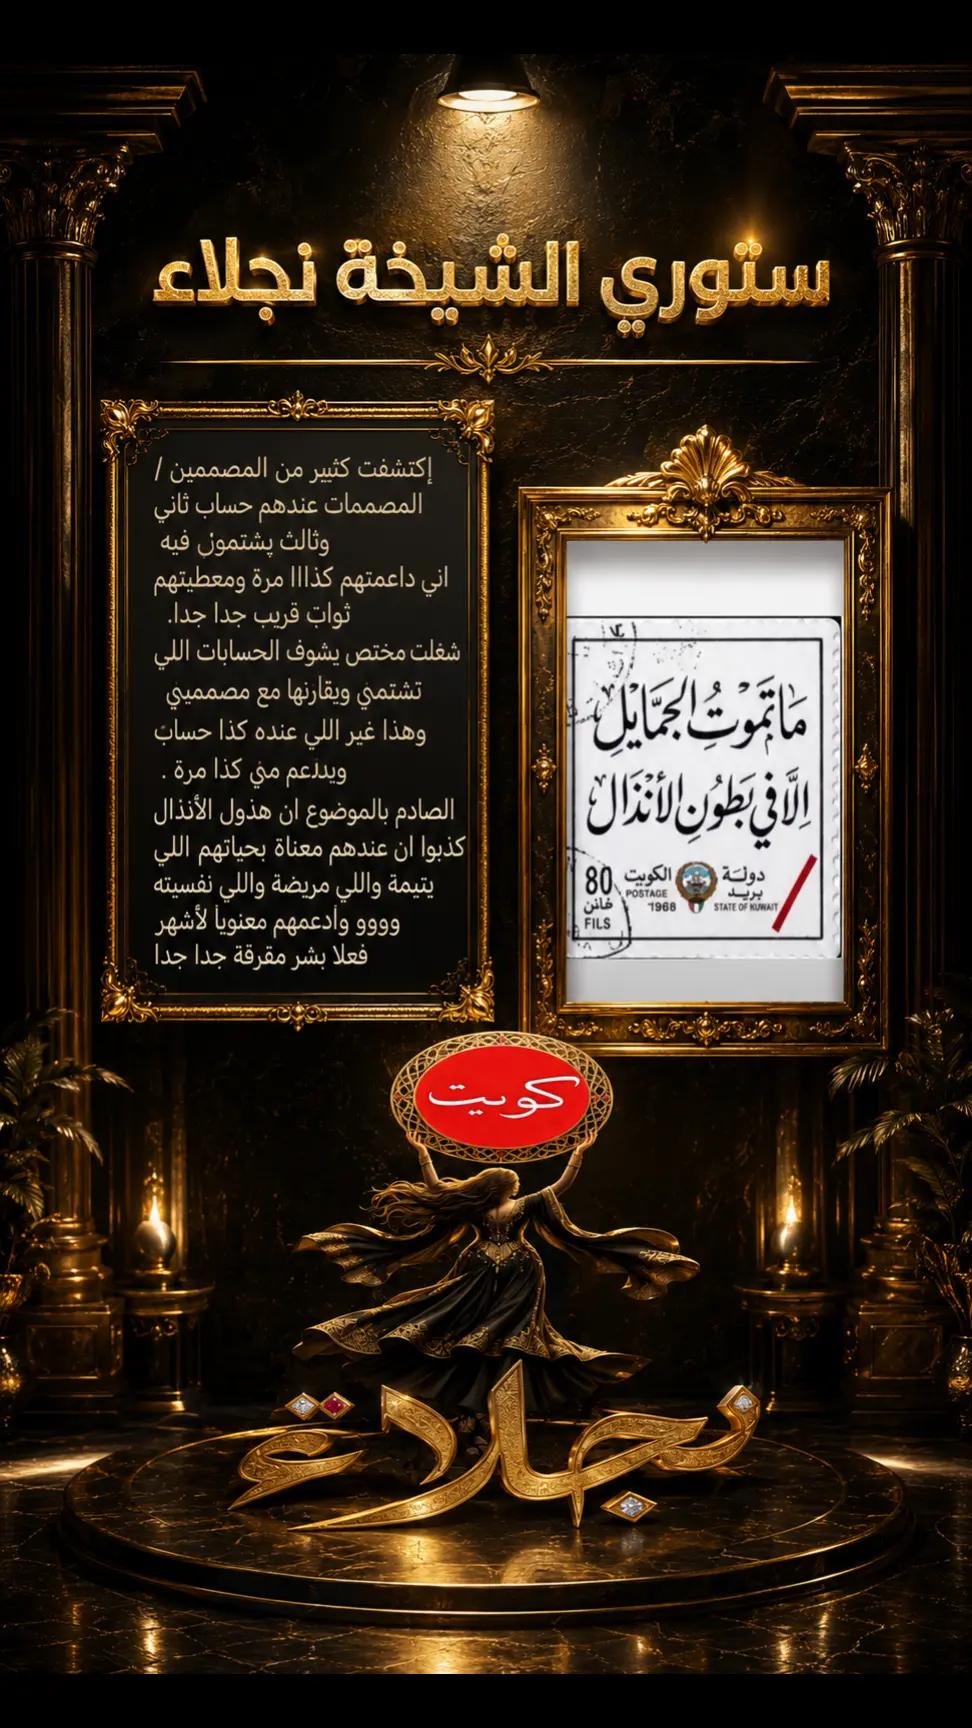 ستوري الشيخة نجلاء
إكتشفت كثيير من المصممين /
المصممات عندهم حساب ثاني
وثالث يشتمون فيه
اني داعمتهم كذااا مرة ومعطيتهم
ثواب قريب جدا جدا.
شغلت مختص يشوف الحسابات اللي
تشتمني ويقارنها مع مصمميني
وهذا غير اللي عنده كذا حساب
ويدعم مني كذا مرة .
الصادم بالموضوع ان هذول الأنذال
كذبوا ان عندهم معناة بحياتهم اللي
يتيمة واللي مريضة واللي نفسيته
وووو وأدعمهم معنوياً لأشهر
فعلا بشر مقرقة جدا جدا
مَاتَمُوتُ الجَمَايْلِ
اِلَّا فِي بَطُونِ الأَنْذَال
دولة الكويت
بريد
POSTAGE
STATE OF KUWAIT
1968
80
فلس
FILS
كويت
نجلاء